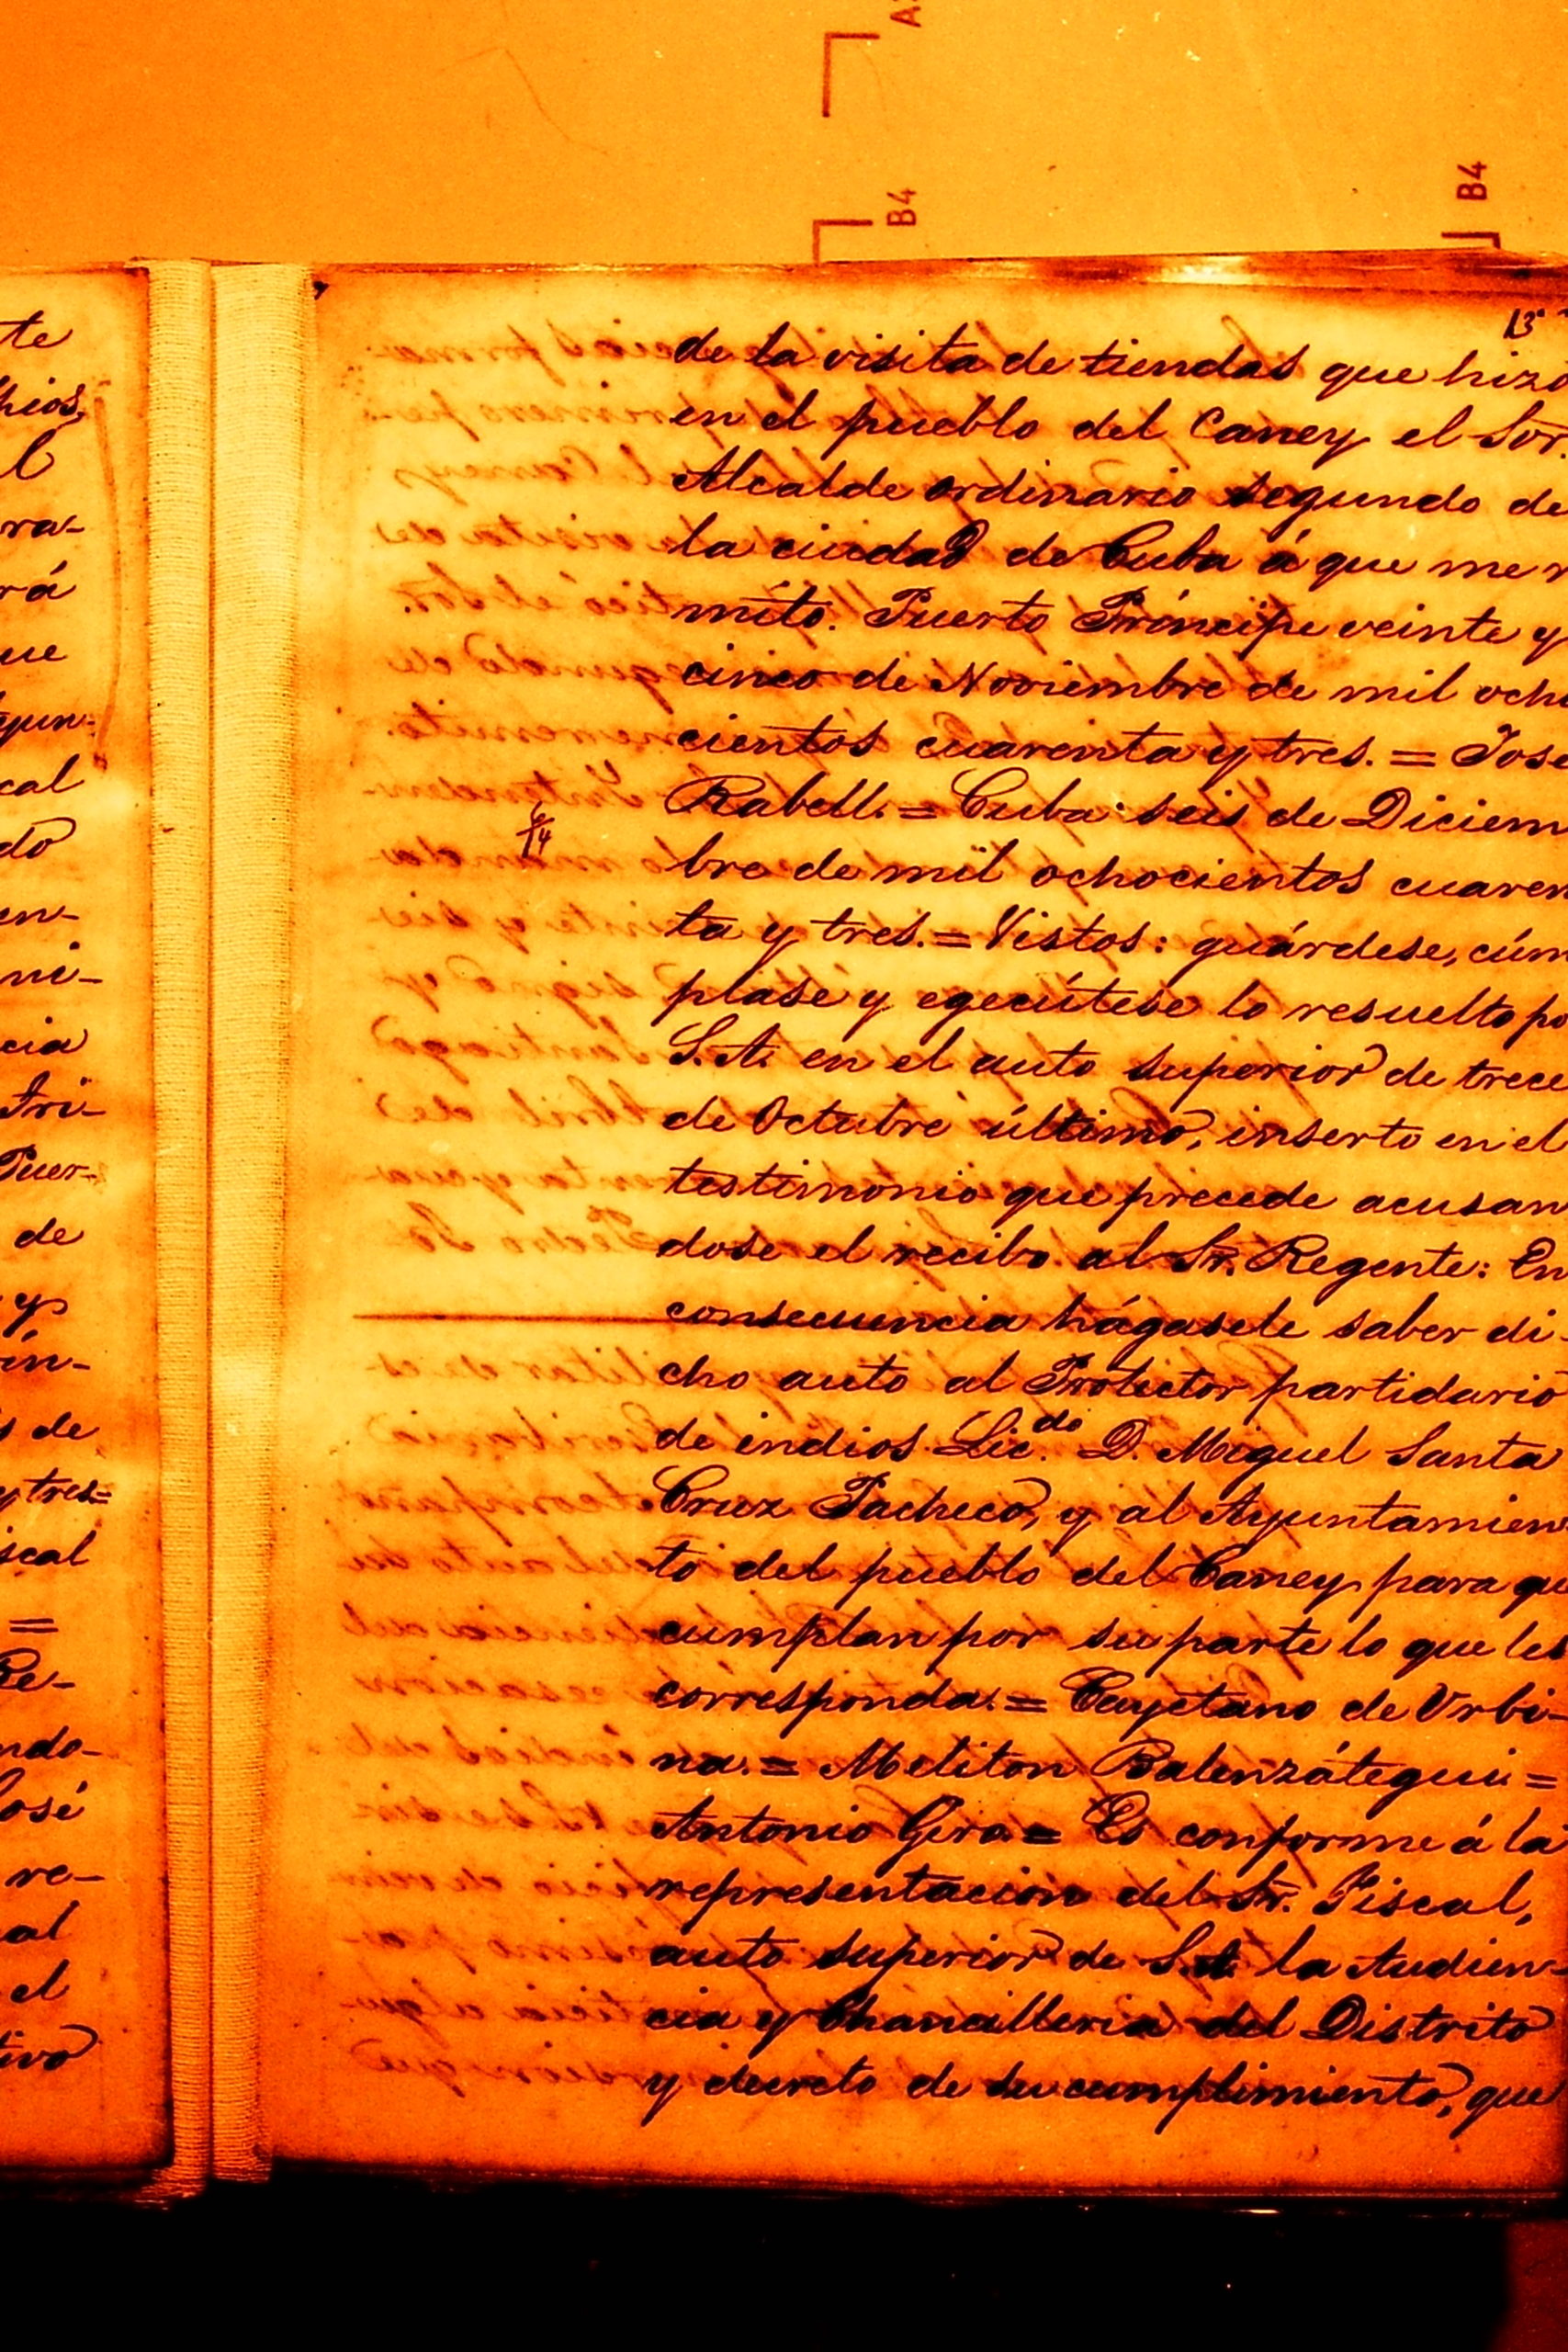 B4
B4
te
hios,
l
ra-
rá
ue
gun-
cal
do
en-
ni-
cia
Tri-
Puer-
de
y
ín-
s de
y tres=
scal
=
Re-
ndo-
José
re-
al
el
tivo
13
de la visita de tiendas que hizo
en el pueblo del Caney el Sor.
Alcalde ordinario segundo de
la ciudad de Cuba á que me r
mito. Puerto Príncipe veinte y
cinco de Noviembre de mil ocho
cientos cuarenta y tres. = Jose
Rabell. = Cuba seis de Diciem
bre de mil ochocientos cuaren
ta y tres. = Vistos: guárdese, cúm
plase y egecútese lo resuelto po
S. A. en el auto superior de trece
de Octubre último, inserto en el
testimonio que precede acusan
dose el recibo al Sr. Regente: En
consecuencia hágasele saber di-
cho auto al Protector partidario
de indios Lic.do D. Miguel Santa
Cruz Pacheco, y al Ayuntamien
to del pueblo del Caney para qu
cumplan por su parte lo que les
corresponda. = Cayetano de Urbi-
na. = Meliton Balenzátegui =
Antonio Gira = Es conforme á la
representacion del Sr. Fiscal,
auto superior de S. A. la Audien-
cia y Chancilleria del Distrito
y decreto de su cumplimiento, que